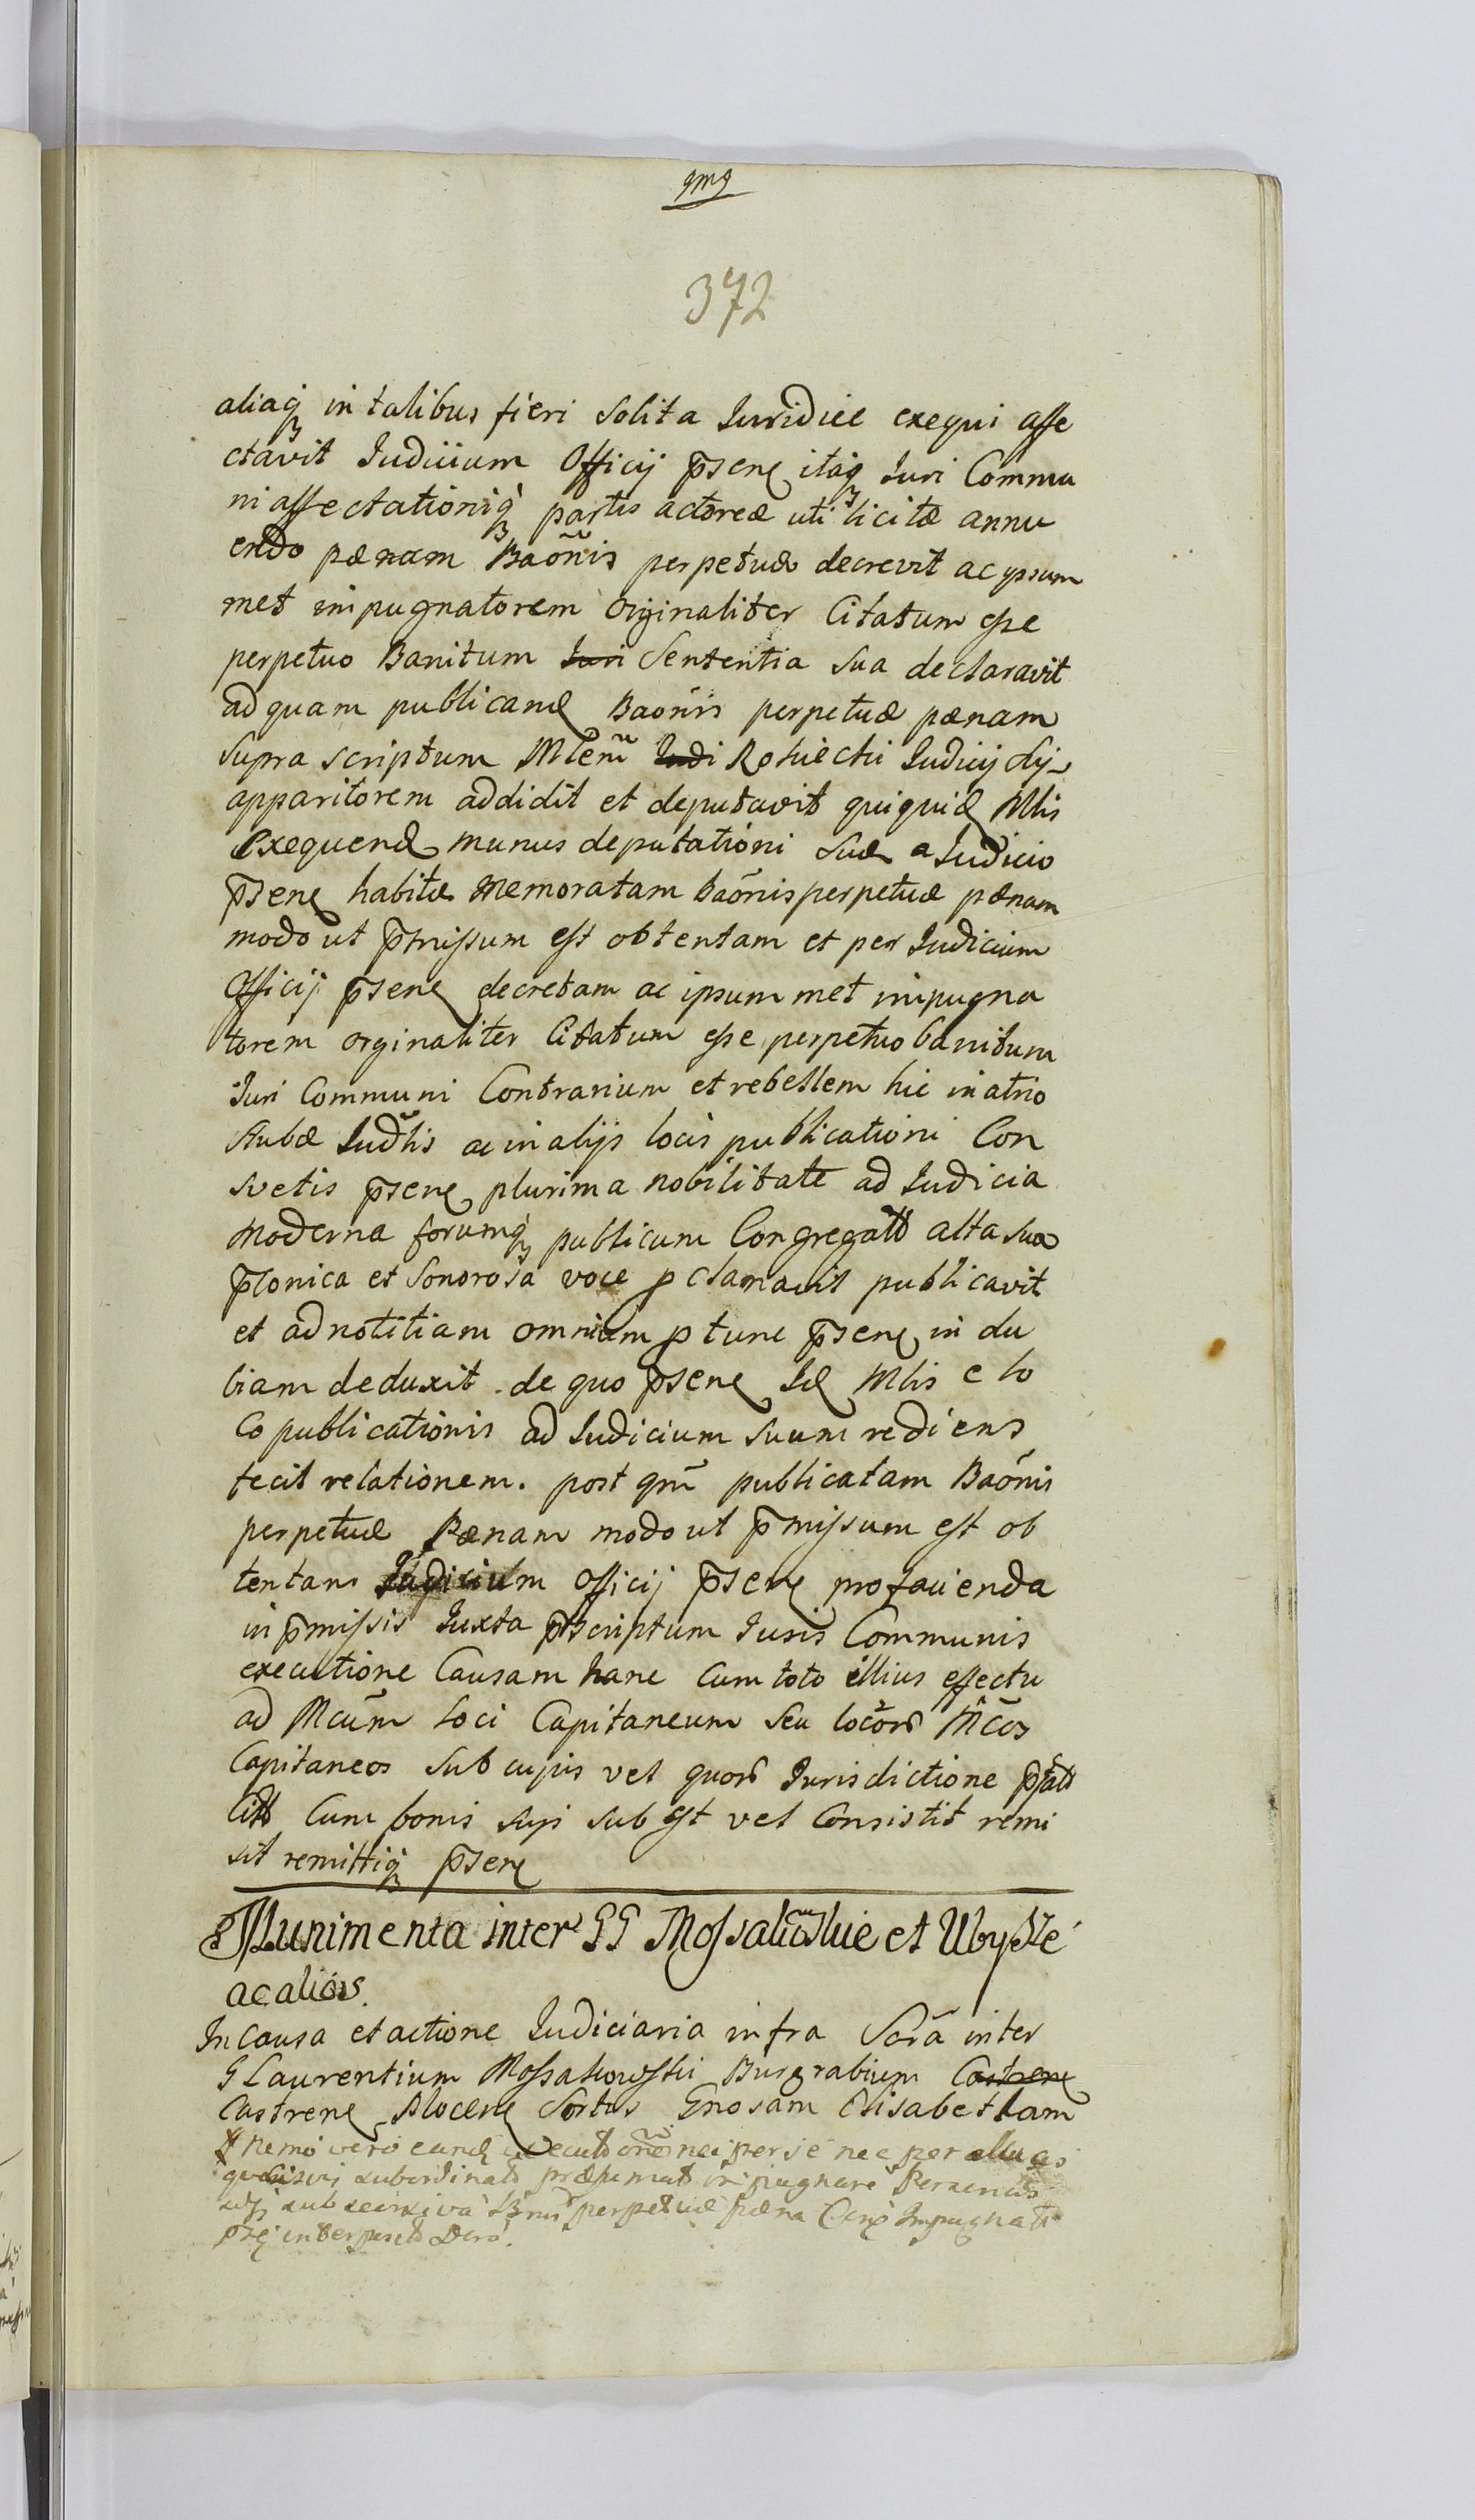 gmg
372
aliaq in talibus fieri solita Iuridice exequi affe
ctavit Iudicium Officij p̄sens itaq Iuri Commu
ni affectationiq partis actoreæ uti licitæ annu
endo pænam Baōnis perpetuæ decrevit ac ipsum
met impugnatorem originaliter Citatum esse
perpetuo Banitum Iuri Sententia sua declaravit
ad quam publicand Baōnis perpetuæ pænam
supra scriptum Mlem̄ Iudi Rohiecki Iudicij
apparitorem addidit et deputavit quiquid Mlis
Exequend munus deputationi suæ a Iudicio
p̄senti habitæ memoratam baōnis perpetuæ pænam
modo ut p̄missum est obtentam et per Iudicium
Officij p̄sens decretam ac ipsum met impugna
torem orginaliter Citatum esse perpetuo banitum
Iuri Communi Contrarium et rebellem hic in atrio
stubæ Iudlis ac in alijs locis publicationi Con
svetis p̄sene plurima nobilitate ad Iudicia
moderna forumq publicum Congregatt alta sua
p̄conica et sonorosa voce p clamavit publicavit
et ad notitiam omnium p tunc p̄sens in du
biam deduxit. de quo p̄sens Id Mlis e lo
co publicationis ad Iudicium suum rediens
fecit relationem. post qm̄ publicatam Baōnis
perpetuæ Pænam modo ut p̄missum est ob
tentam Iudicium officij p̄sens pro facienda
in p̄missis Iuxta p̄scriptum Iuris Communis
executione Causam hanc Cum toto illius effectu
ad Mcūm loci Capitaneum seu locor Mcos
Capitaneos sub cujus vel quor Iurisdictione
Citt Cum bonis suis sub est vel Consistit remi
sit remittiq p̄sens
Munimenta inter GG Mossakowskie et Ubysze
ac alios.
In Causa et actione Iudiciaria infra Scrā inter
G Laurentium Mossakowski Burgrabium Castren
Castren Plocen Sortes Gnosam Elisabetham
Nemo vero eand nec per se nec per
subordinat præsumat impugnare
sub perpetuæ pæna
interposit